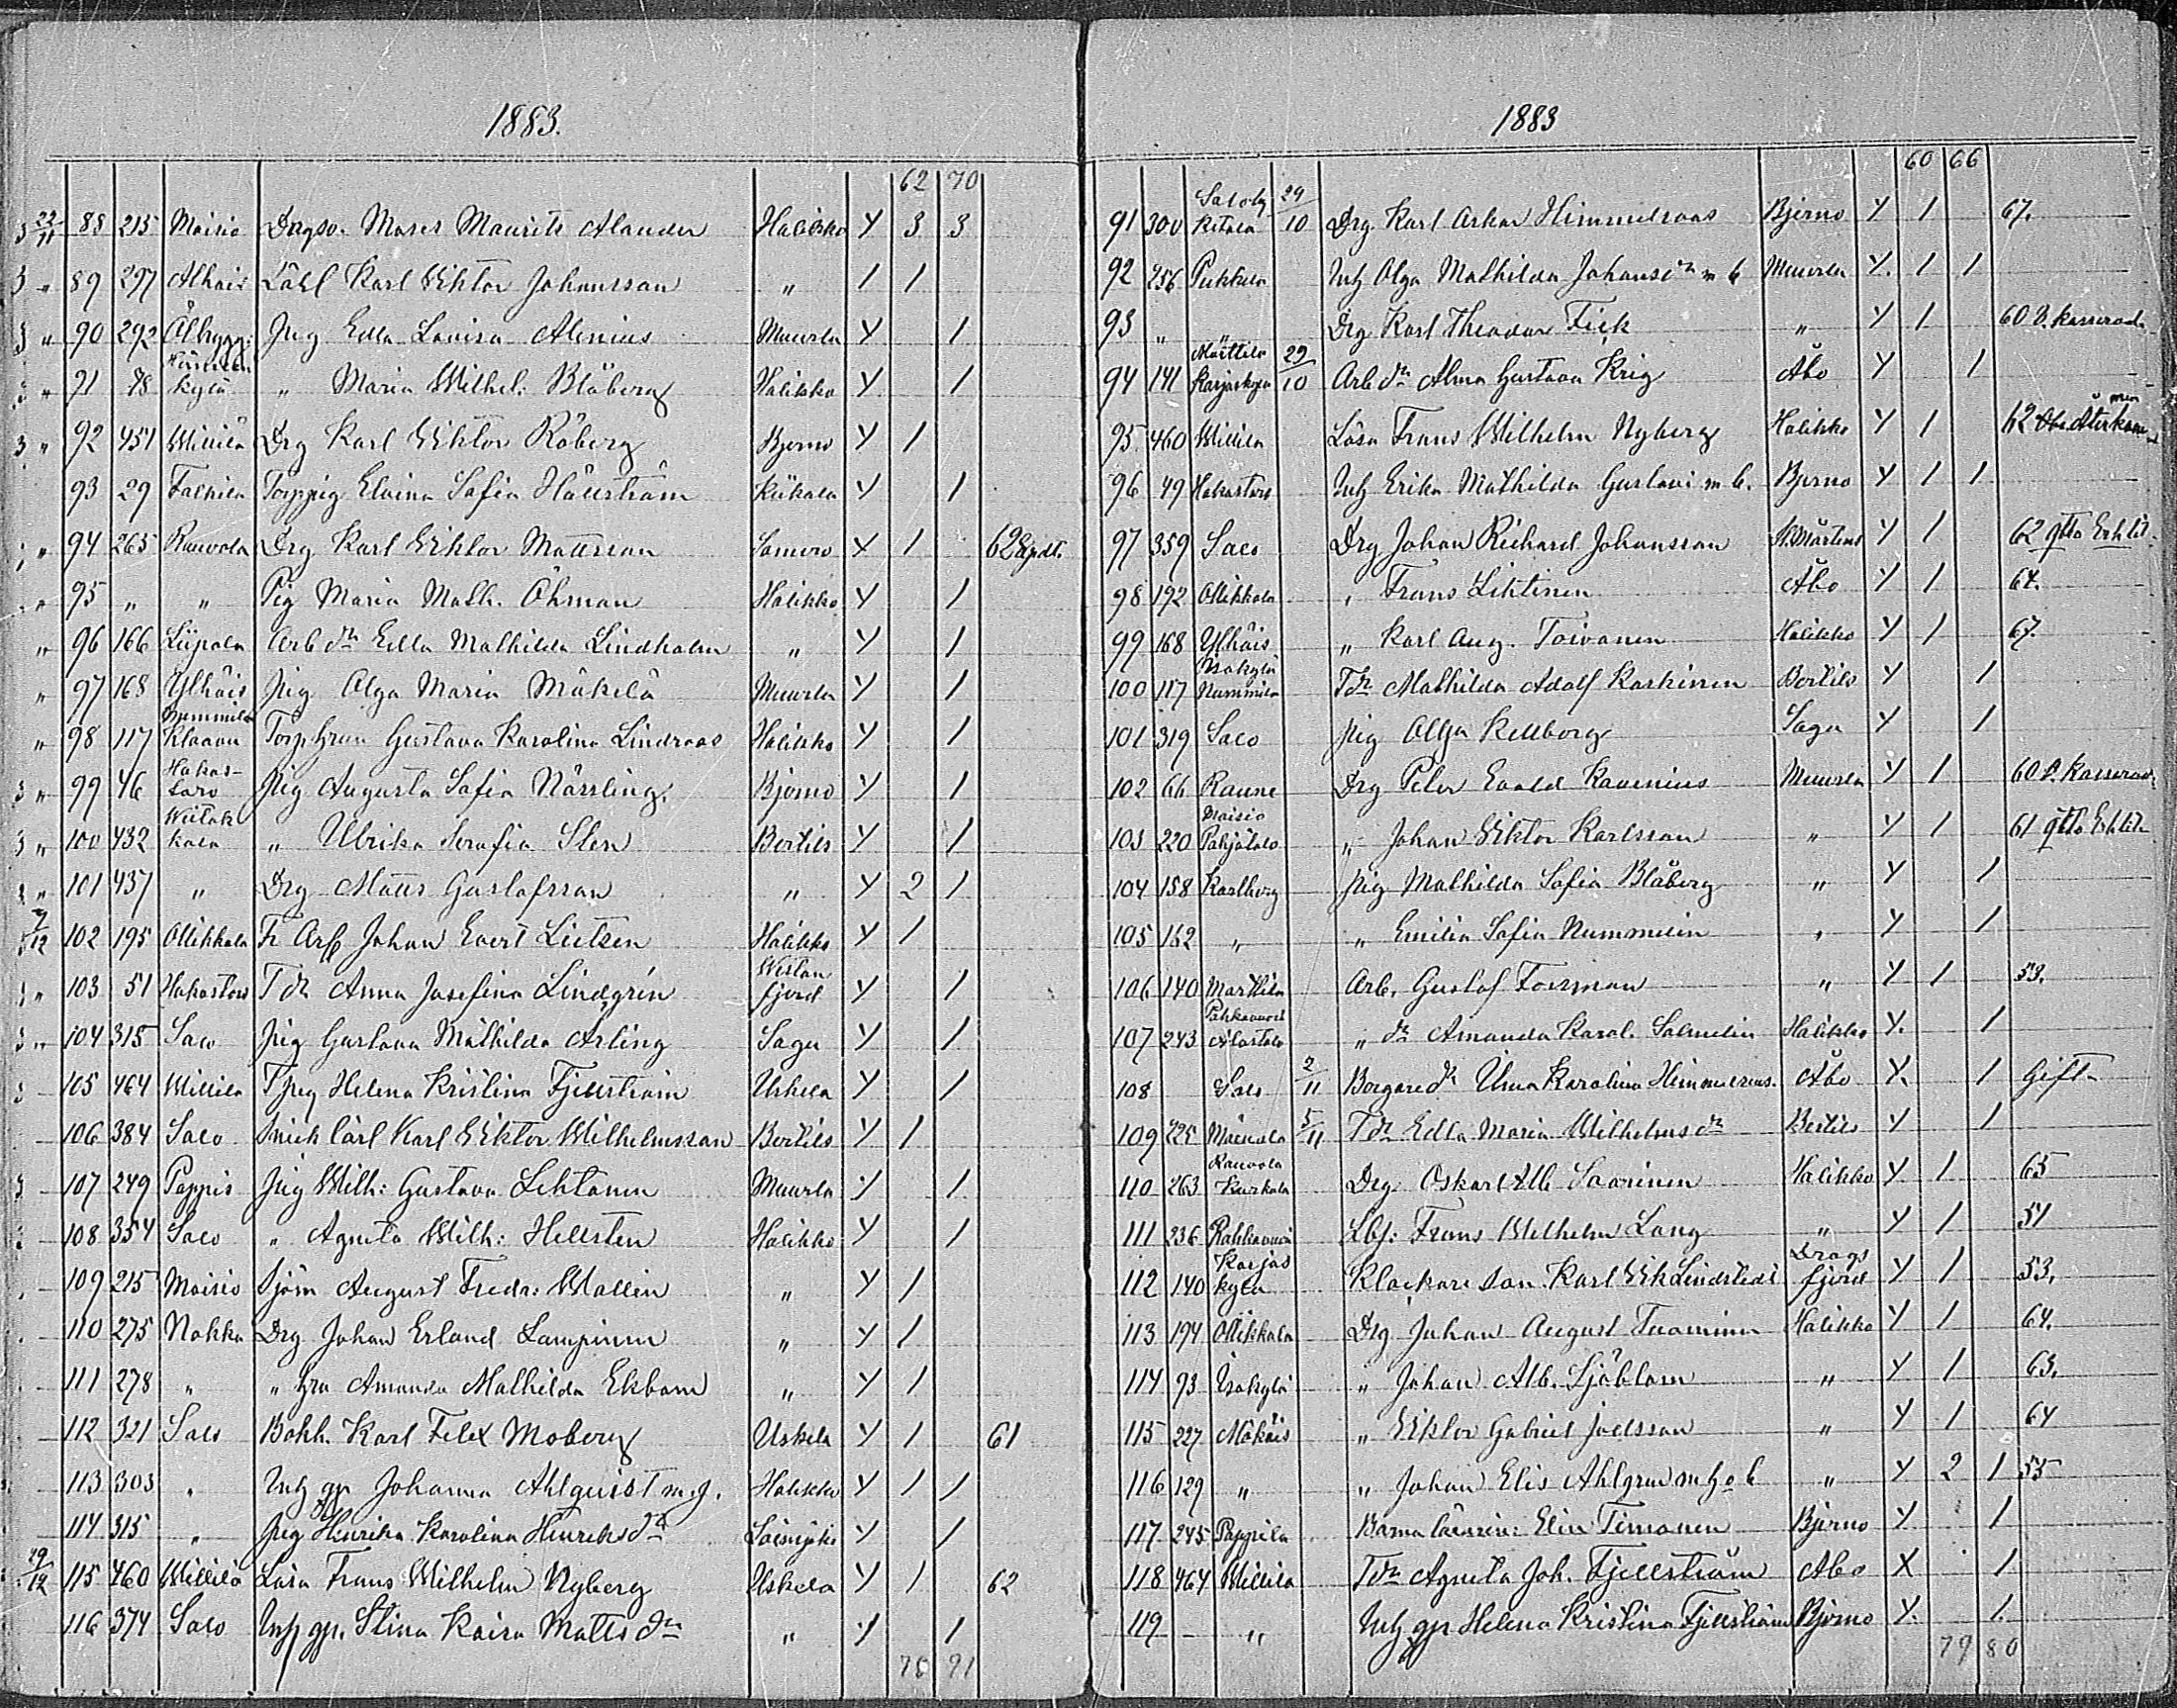 1883.
62 70
22/11 88 215 Moisio Dragso. Moses Maurits Alander Halikko Y 3 3
" 89 297 Alhais Lösk Karl Wiktor Johansson " / /
" 90 292 Älbygg: Jug Edla Lovisa Alenius Muurla Y 1
" 91 78 kylä " Maria Wilhel: Blåberg Halikko Y 1
" 92 451 Willilä Drg Karl Wiktor Råberg Bjerno Y 1
93 29 Torppig Elvina Sofia Hällström Kiikala Y 1
" 94 265 Rauvola Drg Karl Wiktor Mattsson Somero Y 1 62
" 95 " " Pig Maria Math. Öhman Halikko Y 1
" 96 166 Liipola Arb dr Edla Mathilda Lindholm " Y 1
" 97 168 Ylhäis Pig Olga Maria Mäkelä Muurla Y 1
" 98 117 Nummila Klaavu Torphru Gustava Karolina Lindroos Halikko Y 1
" 99 46 Hakas-taro Pig Augusta Sofia Nässling. Bjerno Y 1
" 100 432 kala " Ulrika Serafia Sten Bertils Y 1
" 101 437 " Drg Matts Gustafsson " Y 2 1
102 195 Ollikkala Johan Evert Lietzen Halikko Y 1
" 103 51 Hakastaro Tdr Anna Josefina Lindgrén Westanfjerd Y 1
" 104 315 Salo Pig Gustava Mathilda Arling Sagu Y 1
105 464 Willila Tpig Helena Kristina Fjellström Uskela Y 1
106 384 Salo Snick lärl Karl Wiktor Wilhelmsson Bertils Y 1
107 249 Pappis Pig Wilh: Gustava Lehtonen Muurla Y 1
108 354 Salo " Agneta Wilh: Hellsten Halikko Y 1
109 215 Moisio Sjöm August Fredr: Wallin " Y 1
110 275 Nokka Drg Johan Erland Lampinen " Y 1
111 278 " " hru Amanda Mathilda Ekbom " Y 1
112 321 Salo Bokh. Karl Felix Moberg Uskela Y 1 61
113 303 " Inh gp Johanna Ahlquist m. g. Halikko Y 1 1
114 315 " Pig Henrika Karolina Henriksdr Y 1
29/12 115 460 Willilä Lösa Frans Wilhelm Nyberg Uskela Y 1 62
116 374 Salo Inh gp. Stina Kaisa Matts dr " Y 1
78 91
1883
60 66
91 300 Ketala 29/10 Drg. Karl Oskar Himmelroos Bjerno Y 1 67.
92 256 Pukkila Inh Olga Mathilda Johansdr m b Muurla Y. 1 1
93 " " Drg Karl Theodor Fick " Y 1 60
94 141 Märttila Karjaskylä 29/10 Arb dr Alma Gustava Krig Åbo Y 1
95 460 Willila Lösa Frans Wilhelm Nyberg Halikko Y 1 62 Återkom
96 49 Hakastaro Inh Erika Mathilda Gustavi m b. Bjerno Y 1 1
97 359 Salo Drg Johan Richard Johansson St. Mårtens Y 1 62
98 192 Ollikkala " Frans Lehtinen Åbo Y 1 64.
99 168 Ylhäis " Karl Aug. Toivonen Halikko Y 1 67.
100 117 Isokylä Nummila Tdr Mathilda Adolf Koskinen Bertils Y 1
101 319 Salo Pig Olga Kellberg Sagu Y 1
102 66 Raune Drg Peter Evald Kavenius Muurla Y 1 60
103 220 Moisio Pohjatalo " Johan Wiktor Karlsson " Y 1 61
104 158 Karlberg Pig Mathilda Sofia Blåberg " Y 1
105 152 " " Emilia Sofia Nummelin " Y 1
106 140 Marttila Arb. Gustaf Forsman " Y 1 53.
107 243 Alastalo " dr Amanda Karol. Salmelin Halikko Y. 1
108 Salo 2/11 Borgare dr Karolina Himmelroos. Åbo Y. 1 Gift
109 225 5/11 Tdr Edla Maria Wilhelmsdr Bertils Y 1
110 263 Rauvola Kurkela Drg Oskar Alb Saarinen Halikko Y. 1 65
111 236 Frans Wilhelm Lang " Y 1 51
112 140 Karjaskylä Klockare son Karl Wik Lindstedt Dragsfjerd Y 1 53.
113 194 Ollikkala Drg Johan August Tuominen Halikko Y 1 64.
114 93 Isokylä " Johan Alb. Sjöblom " Y 1 63.
115 227 Mäkäis " Wiktor Gabriel Joelsson " Y 1 64
116 129 " " Johan Elis Ahlgren m h o b " Y 2 1 55
117 245 Pappila Elin Timonen Bjerno Y 1
118 464 Willila Tdr Agneta Joh. Fjellström Åbo X 1
119 " Inh gp Helena Kristina Fjellström Bjerno Y. 1.
79 80